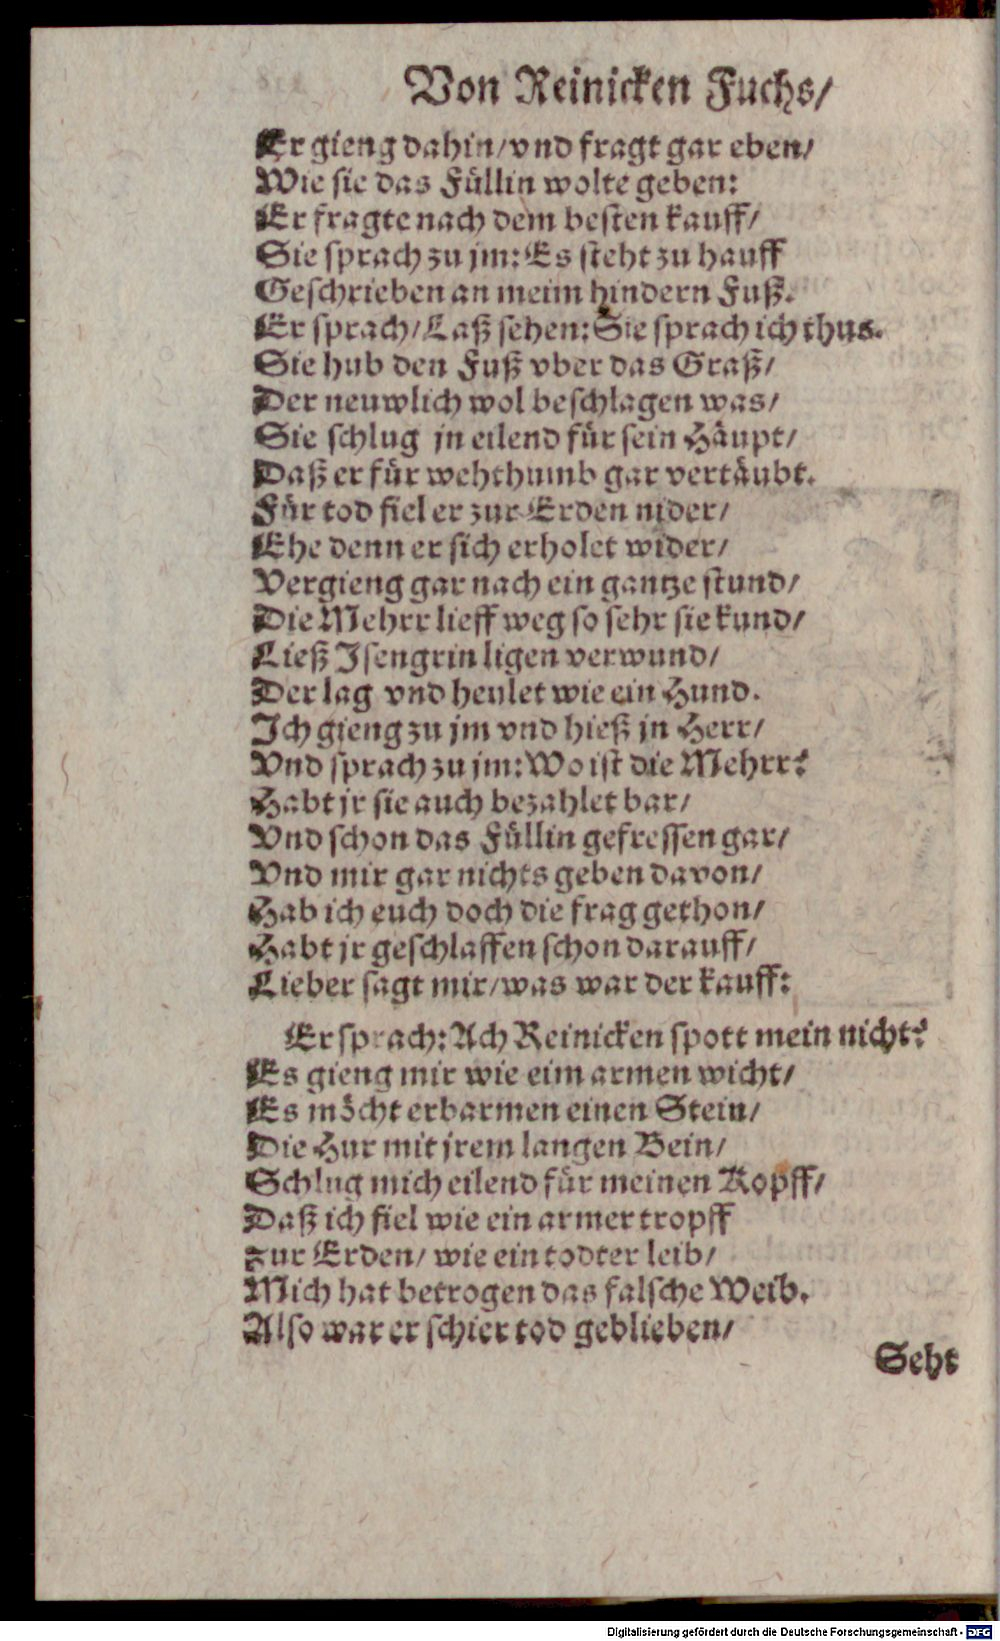 Von Reinicken Fuchs/
Er gieng dahin/ vnd fragt gar eben/
Wie sie das Füllin wolte geben:
Er fragte nach dem besten kauff/
Sie sprach zu jm: Es steht zu hauff
Geschrieben an meim hindern Fuß.
Er sprach/ Laß sehen: Sie sprach ich thus.
Sie hub den Fuß vber das Graß/
Der neuwlich wol beschlagen was/
Sie schlug jn eilend für sein Häupt/
Daß er für wehthumb gar vertäubt.
Für tod fiel er zur Erden nider/
Ehe denn er sich erholet wider/
Vergieng gar nach ein gantze stund/
Die Mehrr lieff weg so sehr sie kund/
Ließ Isengrin ligen verwund/
Der lag vnd heulet wie ein Hund.
Ich gieng zu jm vnd hieß jn Herr/
Vnd sprach zu jm: Wo ist die Mehrr?
Habt jr sie auch bezahlet bar/
Vnd schon das Füllin gefressen gar/
Vnd mir gar nichts geben davon/
Hab ich euch doch die frag gethon/
Habt jr geschlaffen schon darauff/
Lieber sagt mir/ was war der kauff:
Er sprach: Ach Reinicken spott mein nicht?
Es gieng mir wie eim armen wicht/
Es möcht erbarmen einen Stein/
Die Hur mit jrem langen Bein/
Schlug mich eilend für meinen Kopff/
Daß ich fiel wie ein armer tropff
Zur Erden/ wie ein todter leib/
Mich hat betrogen das falsche Weib.
Also war er schier tod geblieben/
Seht
Digitalisierung gefördert durch die Deutsche Forschungsgemeinschaft - DFG